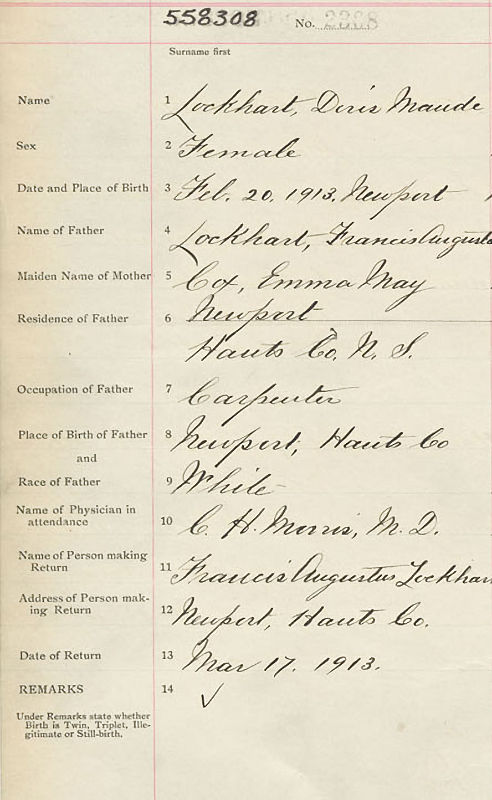 558308 No. 2388
Surname first
Name 1 Lockhart, Doris Maude
Sex 2 Female
Date and Place of Birth 3 Feb. 20, 1913. Newport
Name of Father 4 Lockhart, Francis Augustu
Maiden Name of Mother 5 Cox, Emma May
Residence of Father 6 Newport
Hants Co. N. S.
Occupation of Father 7 Carpenter
Place of Birth of Father 8 Newport, Hants Co
and
Race of Father 9 White
Name of Physician in
attendance 10 C. H. Morris, M. D.
Name of Person making
Return 11 Francis Augustus Lockhar
Address of Person mak-
ing Return 12 Newport, Hants Co.
Date of Return 13 Mar 17. 1913.
REMARKS 14 ✓
Under Remarks state whether
Birth is Twin, Triplet, Ille-
gitimate or Still-birth.